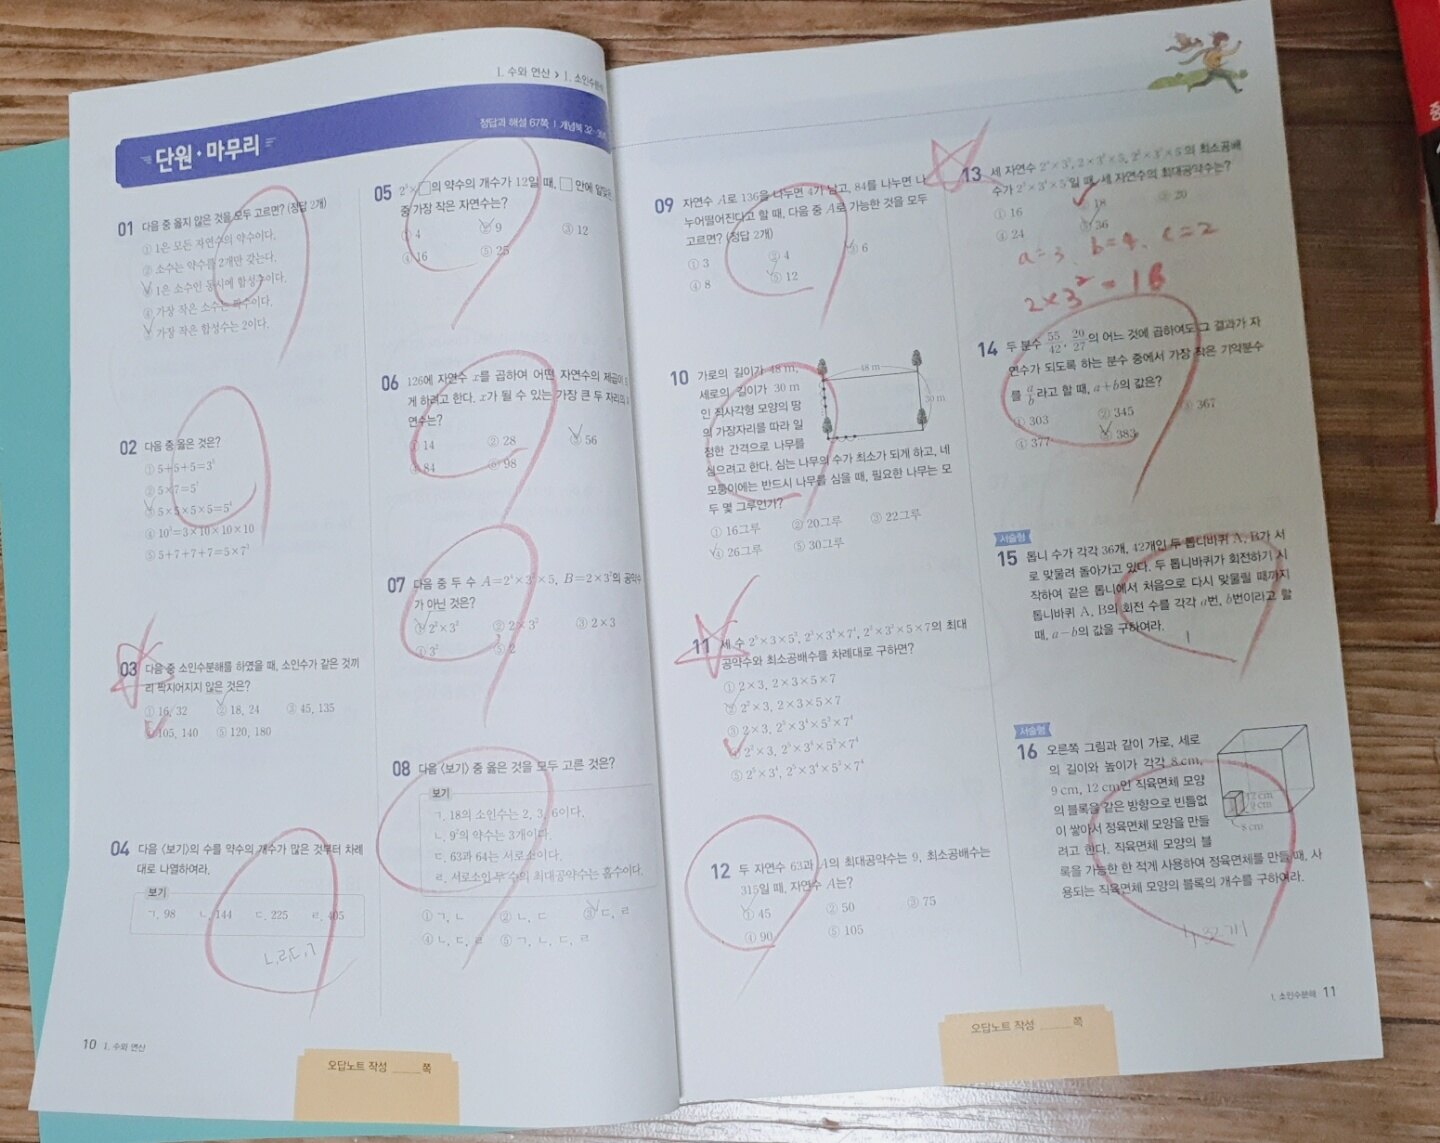 1. 수와 연산 > 1. 소인수분해
단원·마무리
정답과 해설 67쪽 | 개념북 32~
01 다음 중 옳지 않은 것을 모두 고르면? (정답 2개)
① 1은 모든 자연수의 약수이다.
② 소수는 약수를 2개만 갖는다.
③ 1은 소수인 동시에 합성수이다.
④ 가장 작은 소수는 짝수이다.
⑤ 가장 작은 합성수는 2이다.
02 다음 중 옳은 것은?
① 5+5+5=3⁵
② 5×7=5⁷
③ 5×5×5×5=5⁴
④ 10³=3×10×10×10
⑤ 5+7+7+7=5×7³
03 다음 중 소인수분해를 하였을 때, 소인수가 같은 것끼
리 짝지어지지 않은 것은?
① 16, 32 ② 18, 24 ③ 45, 135
④ 105, 140 ⑤ 120, 180
04 다음 <보기>의 수를 약수의 개수가 많은 것부터 차례
대로 나열하여라.
보기
ㄱ. 98 ㄴ. 144 ㄷ. 225 ㄹ. 405
ㄴ,ㄹ,ㄷ,ㄱ
10 1. 수와 연산
오답노트 작성 ____쪽
05 의 약수의 개수가 12일 때, □ 안에 알맞은
중 가장 작은 자연수는?
① 4 ② 9 ③ 12
④ 16 ⑤ 25
06 126에 자연수 x를 곱하여 어떤 자연수의 제곱이
게 하려고 한다. x가 될 수 있는 가장 큰 두 자리의
연수는?
① 14 ② 28 ③ 56
④ 84 ⑤ 98
07 다음 중 두 수 의 공약수
가 아닌 것은?
② 2×3² ③ 2×3
④ 3² ⑤ 2
08 다음 <보기> 중 옳은 것을 모두 고른 것은?
보기
ㄱ. 18의 소인수는 2, 3, 6이다.
ㄴ. 9²의 약수는 3개이다.
ㄷ. 63과 64는 서로소이다.
ㄹ. 서로소인 두 수의 최대공약수는 홀수이다.
① ㄱ, ㄴ ② ㄴ, ㄷ ③ ㄷ, ㄹ
④ ㄴ, ㄷ, ㄹ ⑤ ㄱ, ㄴ, ㄷ, ㄹ
09 자연수 A로 136을 나누면 4가 남고, 84를 나누면 나
누어떨어진다고 할 때, 다음 중 A로 가능한 것을 모두
고르면? (정답 2개)
① 3 ② 4 ③ 6
④ 8 ⑤ 12
10 가로의 길이가 48 m,
세로의 길이가 30 m
인 직사각형 모양의 땅
의 가장자리를 따라 일
정한 간격으로 나무를
심으려고 한다. 심는 나무의 수가 최소가 되게 하고, 네
모퉁이에는 반드시 나무를 심을 때, 필요한 나무는 모
두 몇 그루인가?
48 m
30 m
① 16그루 ② 20그루 ③ 22그루
④ 26그루 ⑤ 30그루
11 세 수 의 최대
공약수와 최소공배수를 차례대로 구하면?
① 2×3, 2×3×5×7
② 2²×3, 2×3×5×7
12 두 자연수 63과 A의 최대공약수는 9, 최소공배수는
315일 때, 자연수 A는?
① 45 ② 50 ③ 75
④ 90 ⑤ 105
13 세 자연수 의 최소공배
수가 일 때, 세 자연수의 최대공약수는?
① 16 ② 18 ③ 20
④ 24 ⑤ 36
a=3, b=4, c=2
2×3²=18
14 두 분수 55/42, 20/27의 어느 것에 곱하여도 그 결과가 자
연수가 되도록 하는 분수 중에서 가장 작은 기약분수
를 a/b라고 할 때, a+b의 값은?
① 303 ② 345 ③ 367
④ 377 ⑤ 383
서술형
15 톱니 수가 각각 36개, 42개인 두 톱니바퀴 A, B가 서
로 맞물려 돌아가고 있다. 두 톱니바퀴가 회전하기 시
작하여 같은 톱니에서 처음으로 다시 맞물릴 때까지
톱니바퀴 A, B의 회전 수를 각각 a번, b번이라고 할
때, a-b의 값을 구하여라.
1
서술형
16 오른쪽 그림과 같이 가로, 세로
의 길이와 높이가 각각 8 cm,
9 cm, 12 cm인 직육면체 모양
의 블록을 같은 방향으로 빈틈없
이 쌓아서 정육면체 모양을 만들
려고 한다. 직육면체 모양의 블
록을 가능한 한 적게 사용하여 정육면체를 만들 때, 사
용되는 직육면체 모양의 블록의 개수를 구하여라.
12 cm
9 cm
8 cm
1. 소인수분해 11
오답노트 작성 ____쪽